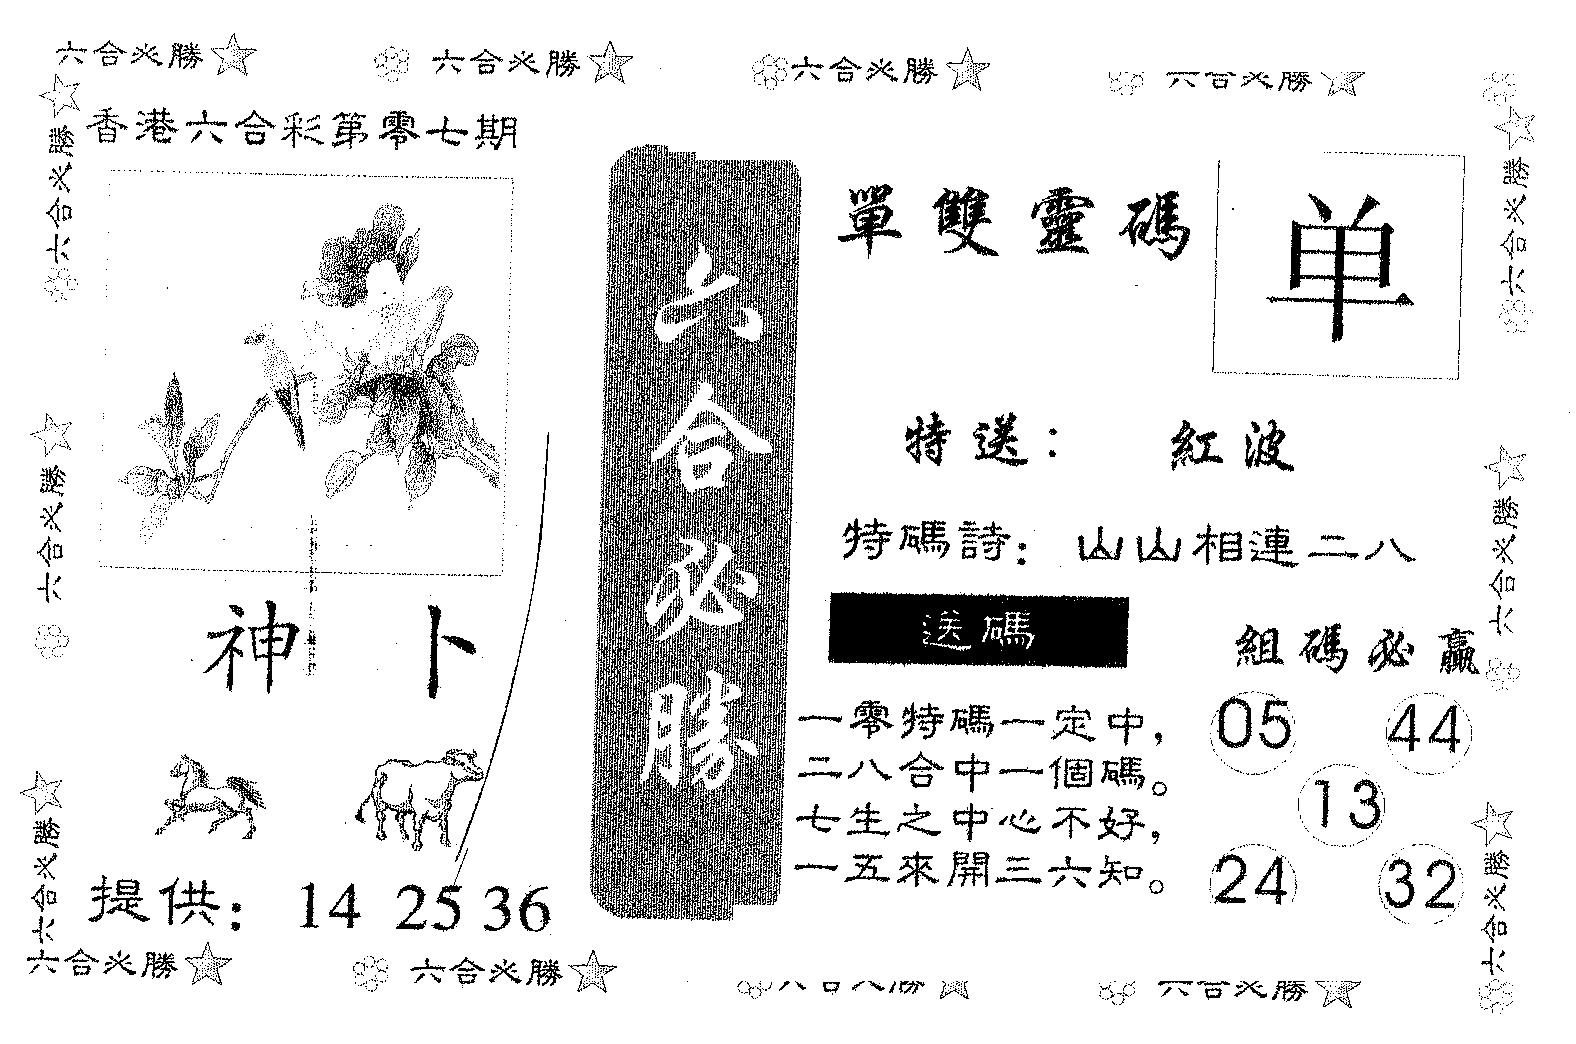 六合必勝
六合必勝
六合必勝
六合必勝
香港六合彩第零七期
六合必勝
六合必勝
神卜
提供: 14 25 36
六合必勝
單雙靈碼
单
特送: 紅波
特碼詩: 山山相連二八
送碼
一零特碼一定中,
二八合中一個碼。
七生之中心不好,
一五來開三六知。
組碼必贏
05 44
13
24 32
六合必勝
六合必勝
六合必勝
六合必勝
六合必勝
六合必勝
六合必勝
六合必勝